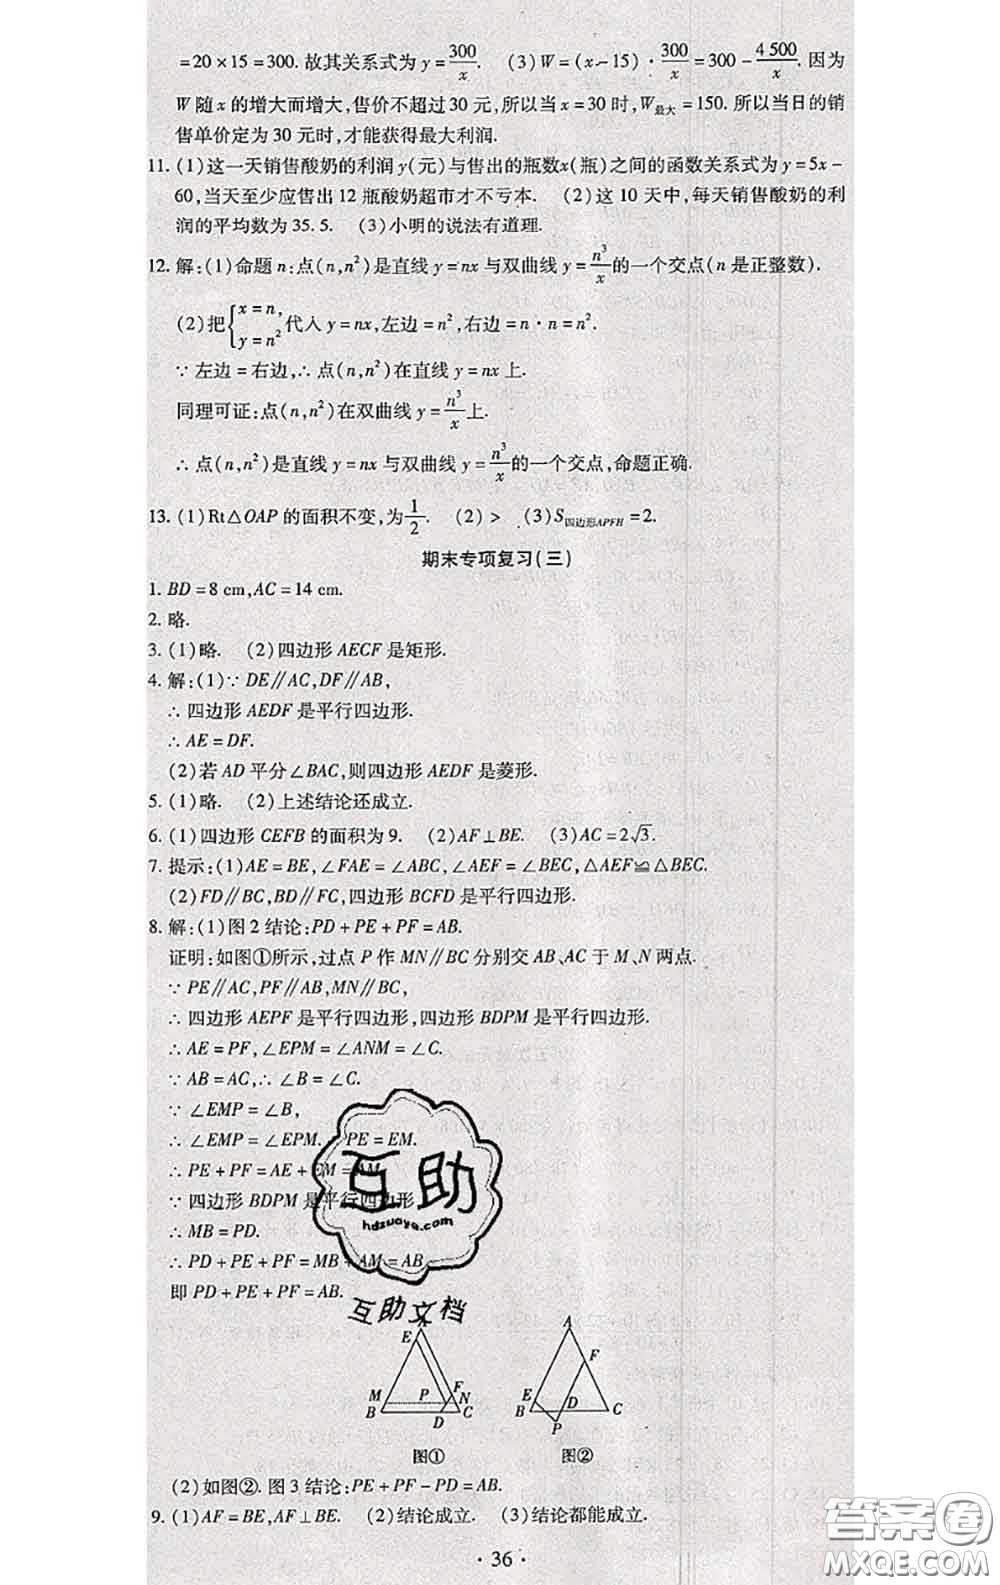 =20×15=300. 故其关系式为 y=300/x. (3)W=(x-15)·300/x=300-4 500/x. 因为
W 随 x 的增大而增大,售价不超过 30 元,所以当 x=30 时,W最大=150. 所以当日的销
售单价定为 30 元时,才能获得最大利润.
11. (1)这一天销售酸奶的利润 y(元)与售出的瓶数x(瓶)之间的函数关系式为 y=5x-
60,当天至少应售出 12 瓶酸奶超市才不亏本. (2)这 10 天中,每天销售酸奶的利
润的平均数为 35.5. (3)小明的说法有道理.
12. 解:(1)命题 n:点(n,n²)是直线 y=nx 与双曲线 y=n³/x的一个交点(n 是正整数).
(2)把{x=n, y=n²代入 y=nx,左边=n²,右边=n·n=n².
∵ 左边=右边,∴ 点(n,n²)在直线 y=nx 上.
同理可证:点(n,n²)在双曲线 y=n³/x上.
∴ 点(n,n²)是直线 y=nx 与双曲线 y=n³/x的一个交点,命题正确.
13. (1)Rt△OAP 的面积不变,为1/2. (2)> (3)S四边形APFH=2.
期末专项复习(三)
1. BD=8 cm,AC=14 cm.
2. 略.
3. (1)略. (2)四边形 AECF 是矩形.
4. 解:(1)∵ DE∥AC,DF∥AB,
∴ 四边形 AEDF 是平行四边形.
∴ AE=DF.
(2)若 AD 平分∠BAC,则四边形 AEDF 是菱形.
5. (1)略. (2)上述结论还成立.
6. (1)四边形 CEFB 的面积为 9. (2)AF⊥BE. (3)AC=2√3.
7. 提示:(1)AE=BE,∠FAE=∠ABC,∠AEF=∠BEC,△AEF≌△BEC.
(2)FD∥BC,BD∥FC,四边形 BCFD 是平行四边形.
8. 解:(1)图 2 结论:PD+PE+PF=AB.
证明:如图①所示,过点 P 作 MN∥BC 分别交 AB、AC 于 M、N 两点.
∵ PE∥AC,PF∥AB,MN∥BC,
∴ 四边形 AEPF 是平行四边形,四边形 BDPM 是平行四边形.
∴ AE=PF,∠EPM=∠ANM=∠C.
∵ AB=AC,∴ ∠B=∠C.
∵ ∠EMP=∠B,
∴ ∠EMP=∠EPM. PE=EM.
∴ PE+PF=AE+EM=AM.
∵ 四边形 BDPM 是平行四边形,
∴ MB=PD.
∴ PD+PE+PF=MB+AM=AB,
即 PD+PE+PF=AB.
互助
hdzuoye.com
互助文档
A
E
M P F N
B D C
图①
A
F
E
B D C
P
图②
(2)如图②. 图 3 结论:PE+PF-PD=AB.
9. (1)AF=BE,AF⊥BE. (2)结论成立. (3)结论都能成立.
· 36 ·
答案圈
MXQE.COM